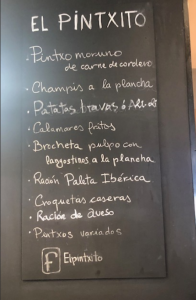 EL PINTXITO
· Pintxo moruno
de carne de cordero
· Champis a la plancha
· Patatas bravas ó Alioli
· Calamares fritos
· Brocheta pulpo con
langostinos a la plancha
· Ración Paleta Ibérica
· Croquetas caseras
· Ración de queso
· Pintxos variados
f Elpintxito